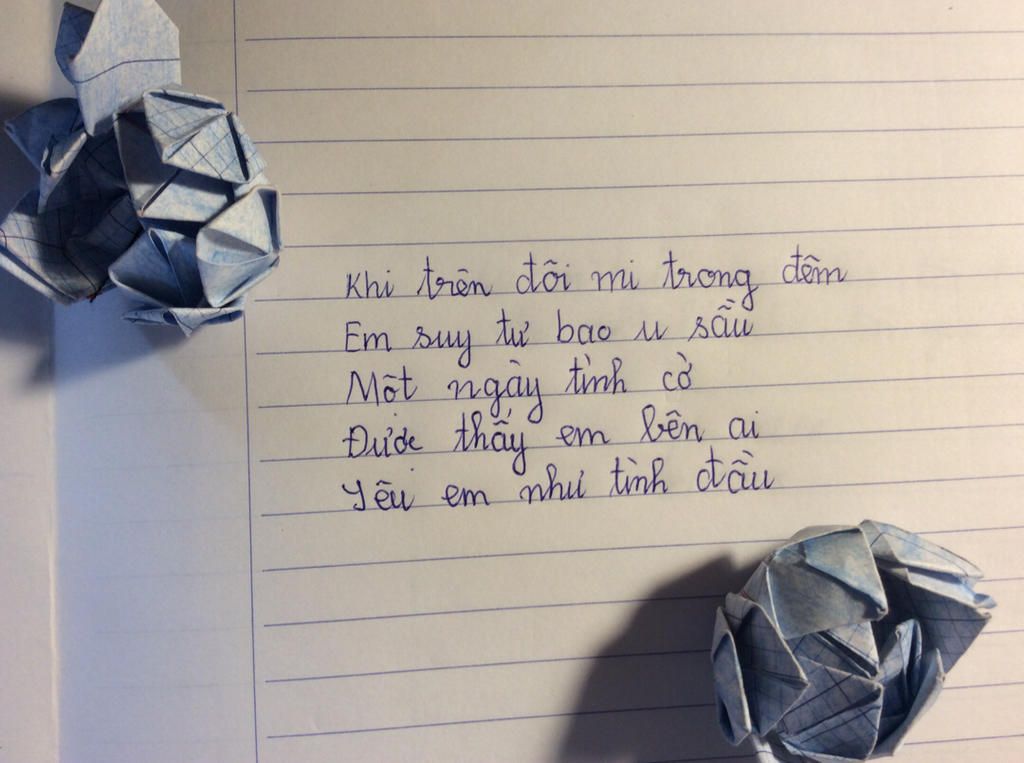 Khi trên đôi mi trong đêm
Em suy tư bao u sầu
Một ngày tình cờ
Được thấy em bên ai
Yêu em như tình đầu